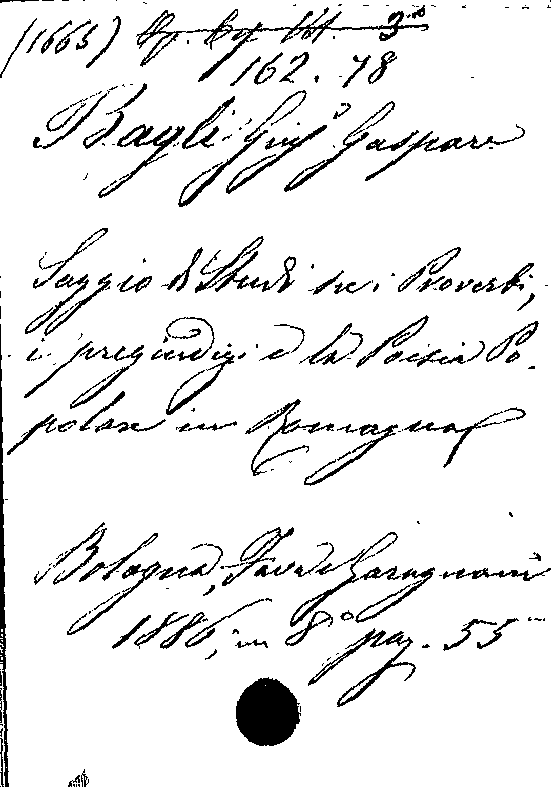 (1665) Op. Cg. VII. 3º
162.78
Bagli Giusº Gaspare
Saggio di Studi su i Proverbi,
i pregiudizi e la Poesia Po-
polare in Romagna
Bologna, Fava e Garagnani
1886, in 8º pag. 55